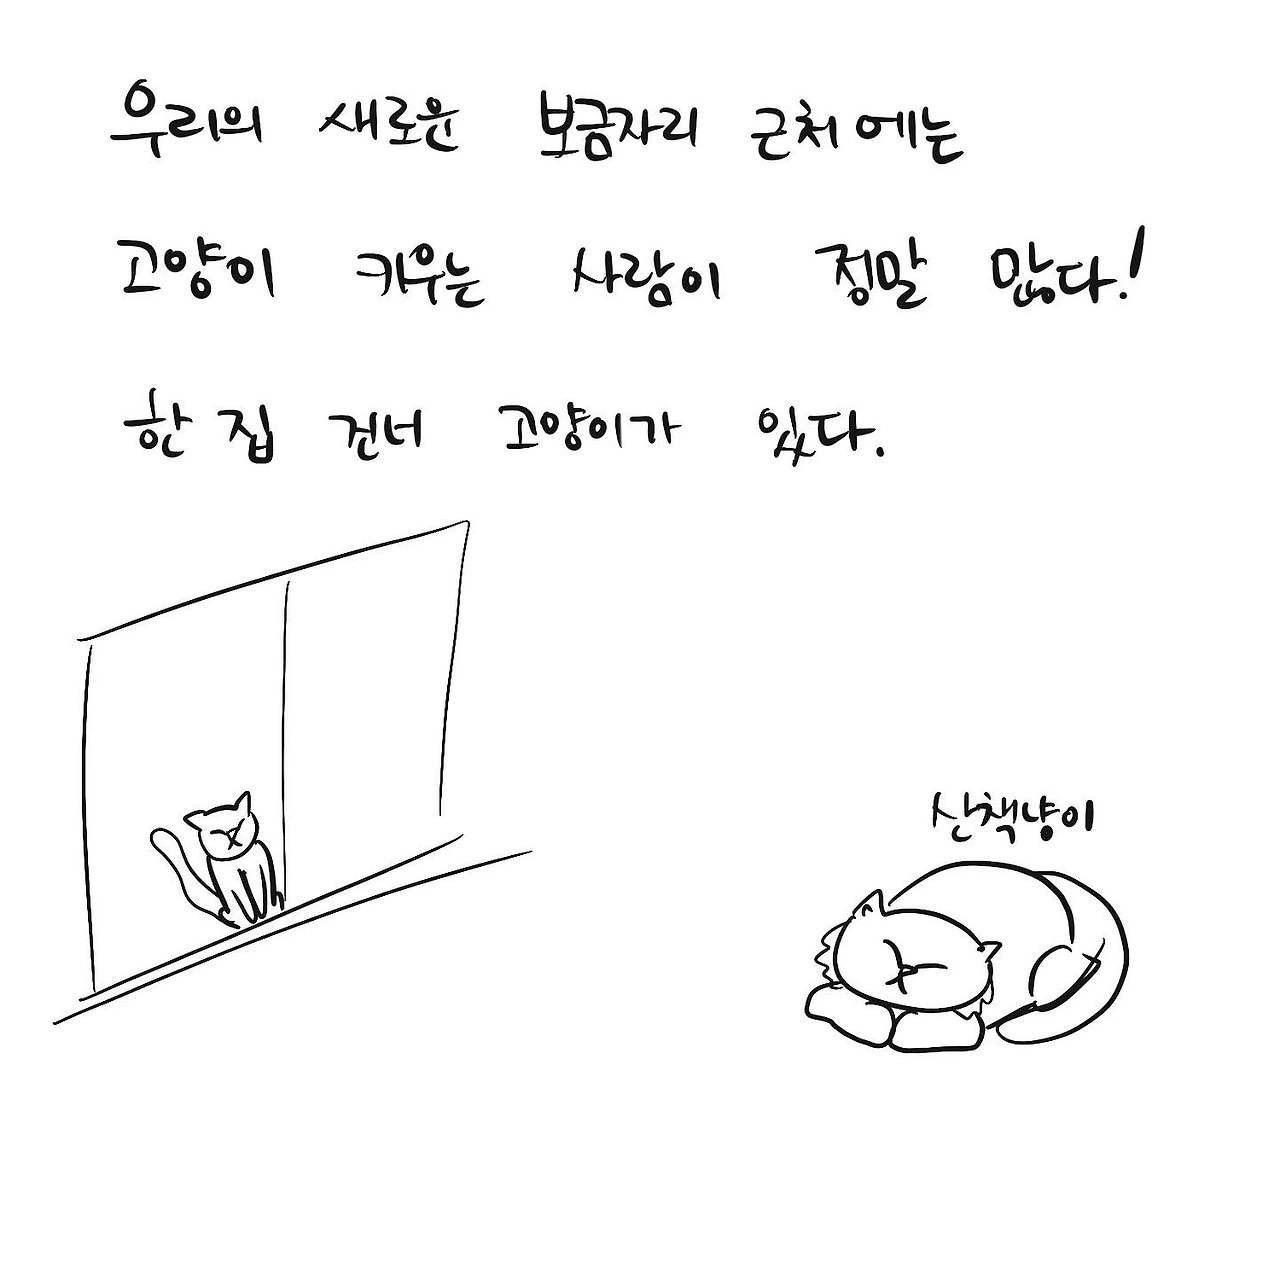 우리의 새로운 보금자리 근처에는
고양이 키우는 사람이 정말 많다!
한 집 건너 고양이가 있다.
산책냥이